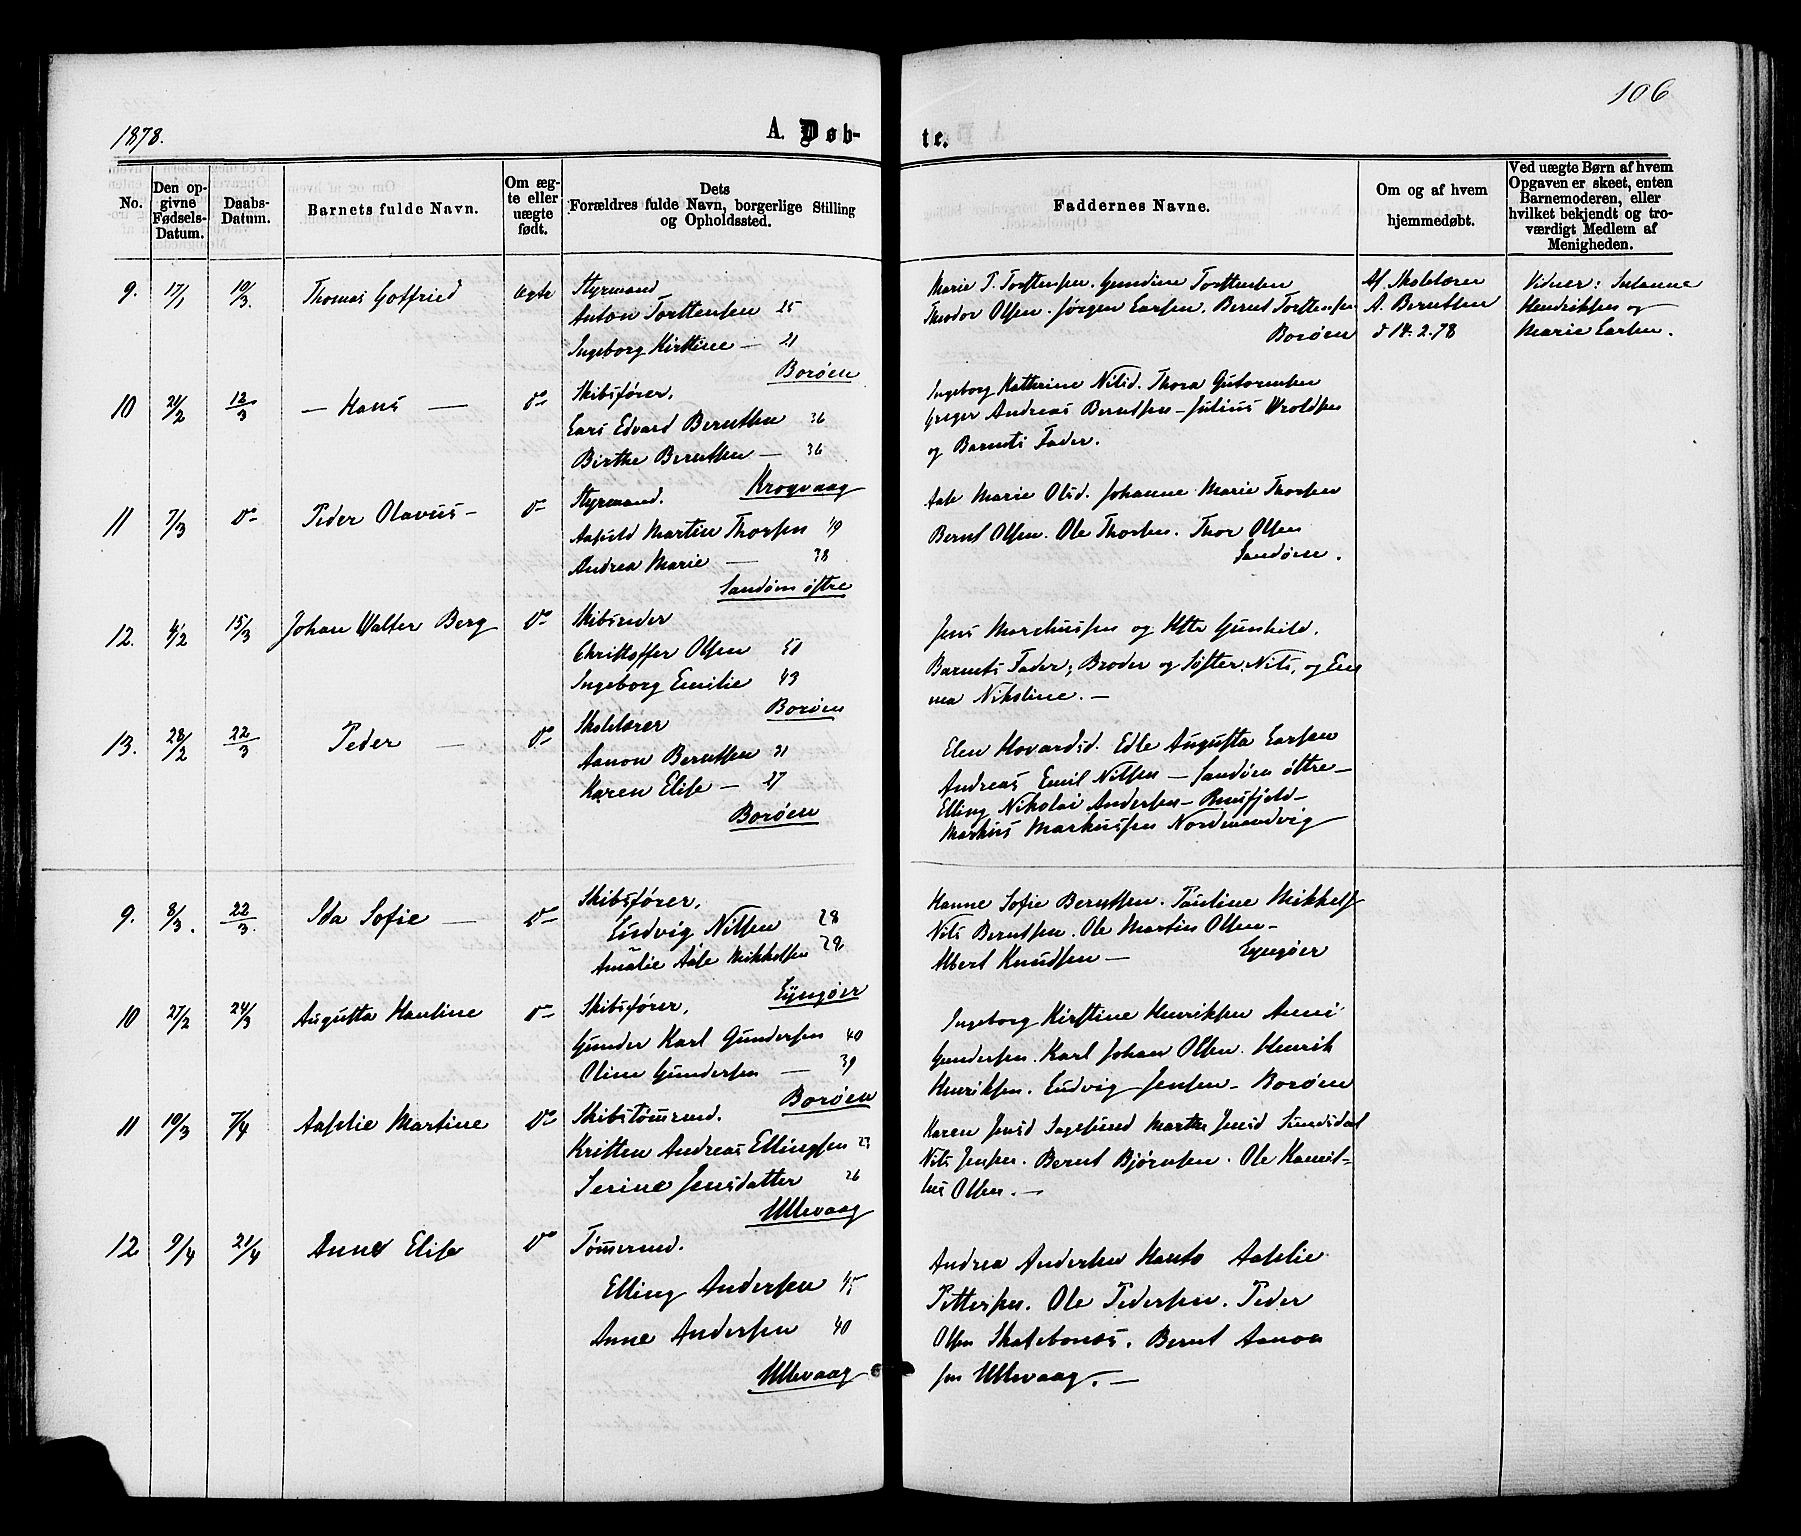 106
1878.
A. Døb-
te.
No.
Den op-
givne
Fødsels-
Datum.
Daabs-
Datum.
Barnets fulde Navn.
Om æg-
te eller
uægte
født.
Dets
Forældres fulde Navn, borgerlige Stilling
og Opholdssted.
Faddernes Navne.
Om og af hvem
hjemmedøbt.
Ved uægte Børn af hvem
Opgaven er skeet, enten
Barnemoderen, eller
hvilket bekjendt og tro-
værdigt Medlem af
Menigheden.
9. 17/1 10/3. Thomas Gotfried ægte
Styrmand
Anton Torstensen 25
Ingeborg Kirstine — 21
Borøen
Marie T. Torstensen. Gundine Torstensen
Theodor Olsen. Jørgen Larsen. Bernt Torstensen
Borøen
Af Skolelærer
A. Berntsen
d 14.2.78
Vidner: Susanne
Hendriksen og
Marie Larsen.
10 21/2 12/3 — Hans — do
Skibsfører,
Lars Edvard Berntsen 36
Birthe Berntsen — 36
Krogvaag
Ingeborg Kathrine Nilsd. Thora Gutormsen
Greger Andreas Berntsen — Julius Wroldsen
og Barnets Fader.
11 7/3 do Peder Olavus — do
Styrmand.
Aasuld Martin Thorsen 49
Andrea Marie — 38
Sandøen østre
Aase Marie Olsd. Johanne Marie Thorsen
Bernt Olsen. Ole Thorsen. Thor Olsen
Sandøen.
12. 4/2 15/3 Johan Walter Berg do
Skibsreder
Christoffer Olsen 50
Ingeborg Emilie 43
Borøen
Jens Marcussen og Gunhild.
Barnets Fader; Broder og Søster: Nils, og Em
ma Nikoline. —
13. 28/2 22/3 Peder — do
Skolelærer
Aanon Berntsen 31
Karen Elise — 27
Borøen
Elen Hovardsd. Edle Augusta Larsen
Andreas Emil Nilsen — Sandøen østre —
Elling Nikolai Andersen —
Markus Markussen Nordmandvig
9. 8/3. 22/3. Ida Sofie — do
Skibsfører,
Ludvig Nilsen 28
Amalie Aase Mikkelsen 28
Lyngøer
Hanne Sofie Berntsen. Pauline Mikkels
Nils Berntsen. Ole Martin Olsen —
Albert Knudsen — Lyngøer
10 27/2 24/3 Augusta Hantine do
Skibsfører,
Gunder Karl Gundersen 40
Oline Gundersen — 39
Borøen
Ingeborg Kirstine Henriksen Anni
Gundersen. Karl Johan Olsen. Henrik
Henriksen. Ludvig Jensen — Borøen
11 10/3 7/4 Aaslie Martine do
Skibstømrmd.
Kristen Andreas Ellingsen 23
Serine Jensdatter 26
Ullevaag
Karen Jensd Sagesund Marthe Jensd Sundsdal
Nils Jensen. Bernt Bjørnsen. Ole Kamil-
lus Olsen. —
12 9/4 21/4 Anne Elise do
Tømermd.
Elling Andersen 45
Anne Andersen 40
Ullevaag
Andrea Andersen Hanto Aaslie
Pettersen. Ole Pedersen. Peder
Olsen Skatebonæs. Bernt Aanon
sen Ullevaag. —